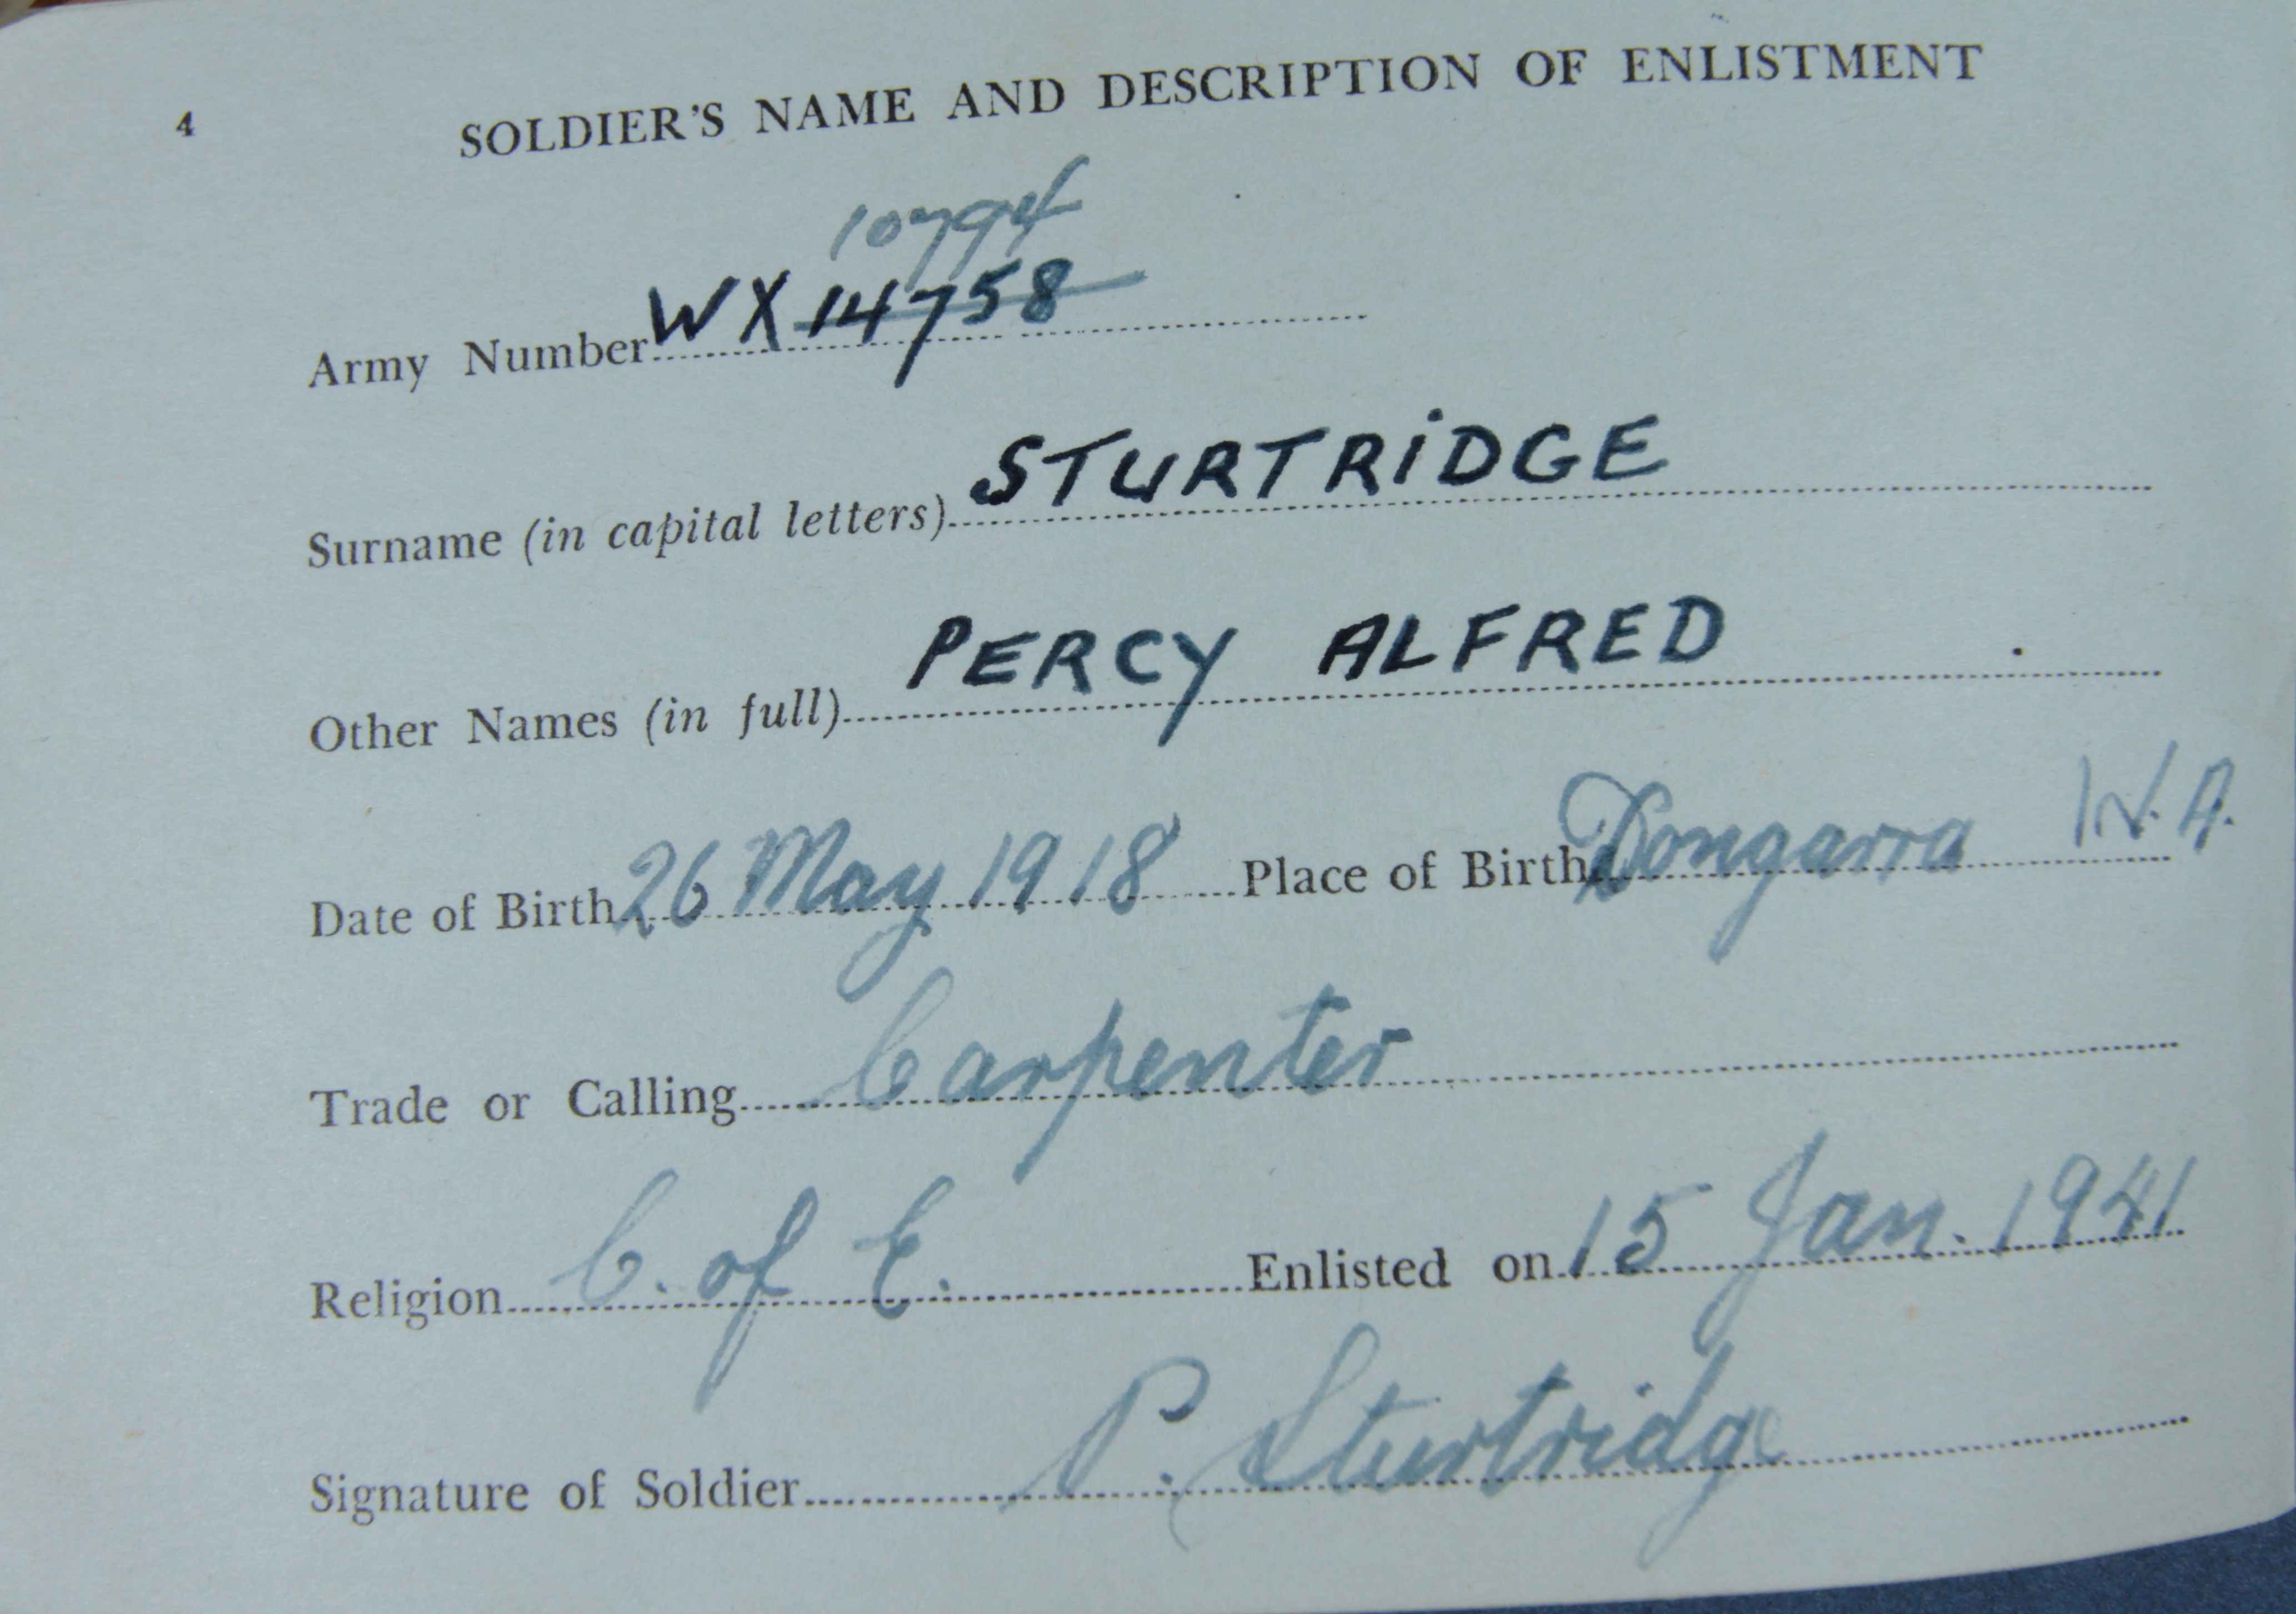 4 SOLDIER'S NAME AND DESCRIPTION OF ENLISTMENT
10794
Army Number WX 14758
Surname (in capital letters) STURTRIDGE
Other Names (in full) PERCY ALFRED
Date of Birth 26 May 1918 Place of Birth Dongarra W.A.
Trade or Calling Carpenter
Religion C. of E. Enlisted on 15 Jan. 1941
Signature of Soldier P. Sturtridge